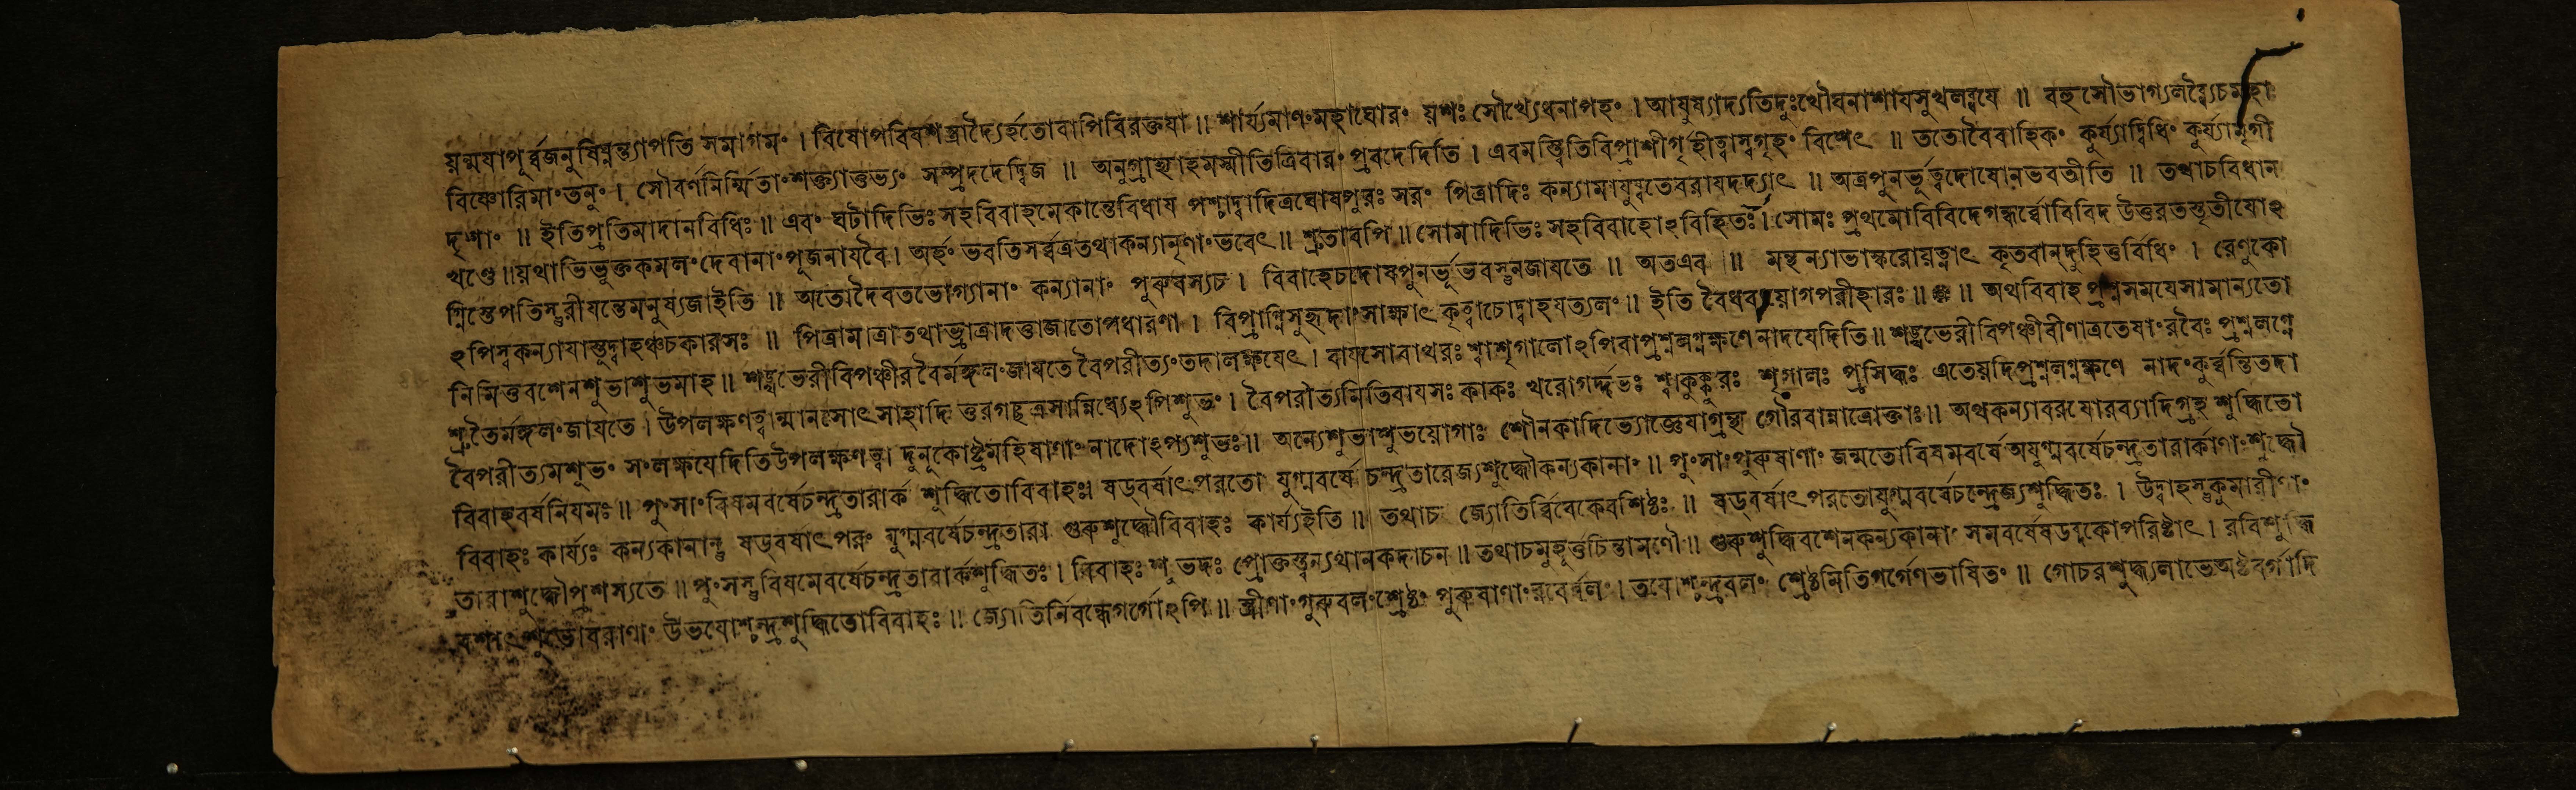 য়ন্ময়াপূর্ব্বজনুষিঘ্নন্ত্যাপতি সমাগমং । বিষোপবিষশস্ত্রাদ্যৈর্হতোবাপিবিরক্তয়া ॥ প্রাপ্যমাণংমহাঘোরং য়শঃ সৌখ্যেধনাপহং । আয়ুষ্যাদ্যতিদুঃখৌঘনাশায়সুখলব্ধয়ে ॥ বহুসৌভাগ্যলব্ধ্যৈচমহা
বিষ্ণোরিমাংতনুং । সৌবর্ণনির্ম্মিতাংশক্ত্যাতুভ্যং সম্প্রদদেদ্বিজ ॥ অনুগ্রাহ্যাহমস্মীতিত্রিবারং প্রবদেদিতি । এবমস্ত্বিতিবিপ্রাশীর্গৃহীত্বাস্বগৃহং বিশেৎ ॥ ততোবৈবাহিকং কুর্য্যাদ্বিধিং কুর্য্যান্মৃগী
দৃশাং ॥ ইতিপ্রতিমাদানবিধিঃ ॥ এবং ঘটাদিভিঃ সহবিবাহমেকান্তেবিধায় পশ্চাদ্বাদিত্রঘোষপুরঃ সরং পিত্রাদিঃ কন্যামায়ুষ্মতেবরায়দদ্যাৎ ॥ অত্রপুনর্ভূত্বদোষোনভবতীতি ॥ তথাচবিধান
খণ্ডে ॥ য়থাভিভুক্তকমলং দেবানাং পূজনায়বৈ । অর্হং ভবতিসর্ব্বত্রতথাকন্যানৃণাং ভবেৎ ॥ শ্রুতাবপি ॥ সোমাদিভিঃ সহবিবাহোঽবিহিতঃ । সোমঃ প্রথমোবিবিদেগন্ধর্ব্বোবিবিদ উত্তরতস্তৃতীয়োঽ
গ্নিস্তেপতিস্তুরীয়স্তেমনুষ্যজাইতি ॥ অতোদৈবতভোগ্যানাং কন্যানাং পুরুষস্যচ । বিবাহেচদোষপুনর্ভূভবস্তুনজায়তে ॥ অতএব ॥ মন্থন্যাভাস্করোয়ত্নাৎ কৃতবান্দুহিতুর্বিধিং । রেণুকো
ঽপিস্বকন্যায়াস্তূদ্বাহঞ্চচকারসঃ ॥ পিত্রামাত্রাতথাভ্রাত্রাদত্তাজাতোপধারণা । বিপ্রাগ্নিসুহৃদাংসাক্ষাৎ কৃত্বাচোদ্বাহয়ত্যলং ॥ ইতি বৈধব্যয়োগপরীহারঃ ॥ ॥ অথবিবাহপ্রশ্নসময়েসামান্যতো
নিমিত্তবশেনশুভাশুভমাহ ॥ শঙ্খভেরীবিপঞ্চীরবৈর্মঙ্গলংজায়তে বৈপরীত্যংতদালক্ষয়েৎ । বায়সোবাথরঃ শ্বাশৃগালোঽপিবাপ্রশ্নলগ্নক্ষণেনাদয়েদিতি ॥ শঙ্খভেরীবিপঞ্চীবীণাত্রতেষাংরবৈঃ প্রশ্নলগ্নে
শ্রুতৈর্মঙ্গলংজায়তে । উপলক্ষণত্বান্মানসোৎসাহাদি তুরগছত্রসান্নিধ্যেঽপিশুভং । বৈপরীত্যমিতিবায়সঃ কাকঃ খরোগর্দ্দভঃ শ্বাকুক্কুরঃ শৃগালঃ প্রসিদ্ধঃ এতেয়দিপ্রশ্নলগ্নক্ষণে নাদংকুর্ব্বন্তিতদা
বৈপরীত্যমশুভং সংলক্ষয়েদিতিউপলক্ষণত্বা দুলূকোষ্ট্রমহিষাণাং নাদোঽপ্যশুভঃ ॥ অন্যেশুভাশুভয়োগাঃ শৌনকাদিভ্যোজ্ঞেয়াগ্রন্থ গৌরবান্নাত্রোক্তাঃ ॥ অথকন্যাবরয়োরব্যাদিগ্রহ শুদ্ধিতো
বিবাহবর্ষনিয়মঃ ॥ পুংসাংবিষমবর্ষেচন্দ্রতারার্ক শুদ্ধিতোবিবাহঃ । ষড্বর্ষাৎপরতো যুগ্মবর্ষে চন্দ্রতারেজ্যশুদ্ধৌকন্যকানাং ॥ পুংসাংপুরুষাণাং জন্মতোবিষমবর্ষে অযুগ্মবর্ষেচন্দ্রতারার্কাণাংশুদ্ধৌ
বিবাহঃ কার্য্যঃ কন্যকানান্তু ষড্বর্ষাৎপরং যুগ্মবর্ষেচন্দ্রতারা গুরুশুদ্ধৌবিবাহঃ কার্য্যইতি ॥ তথাচ জ্যোতির্ব্বিবেকেবশিষ্ঠঃ ॥ ষড্বর্ষাৎপরতোযুগ্মবর্ষেচন্দ্রেজ্যশুদ্ধিতঃ । উদ্বাহস্তুকুমারীণাং
তারাশুদ্ধৌপ্রশস্যতে ॥ পুংসস্তুবিষমেবর্ষেচন্দ্রতারার্কশুদ্ধিতঃ । বিবাহঃ শুভদঃ প্রোক্তস্ত্বন্যথানকদাচন ॥ তথাচমুহূর্ত্তচিন্তামণৌ ॥ গুরুশুদ্ধিবশেনকন্যকানাং সমবর্ষেষষড়ব্দকোপরিষ্টাৎ । রবিশুদ্ধি
বশাৎশুভোবরাণাং উভয়োশ্চন্দ্রশুদ্ধিতোবিবাহঃ ॥ জ্যোতির্নিবন্ধেগর্গোঽপি ॥ স্ত্রীণাংগুরুবলংশ্রেষ্ঠং পুরুষাণাংরবের্ব্বলং । তয়োশ্চন্দ্রবলং শ্রেষ্ঠমিতিগর্গেণভাষিতং ॥ গোচরশুদ্ধ্যলাভেঅষ্টবর্গাদি